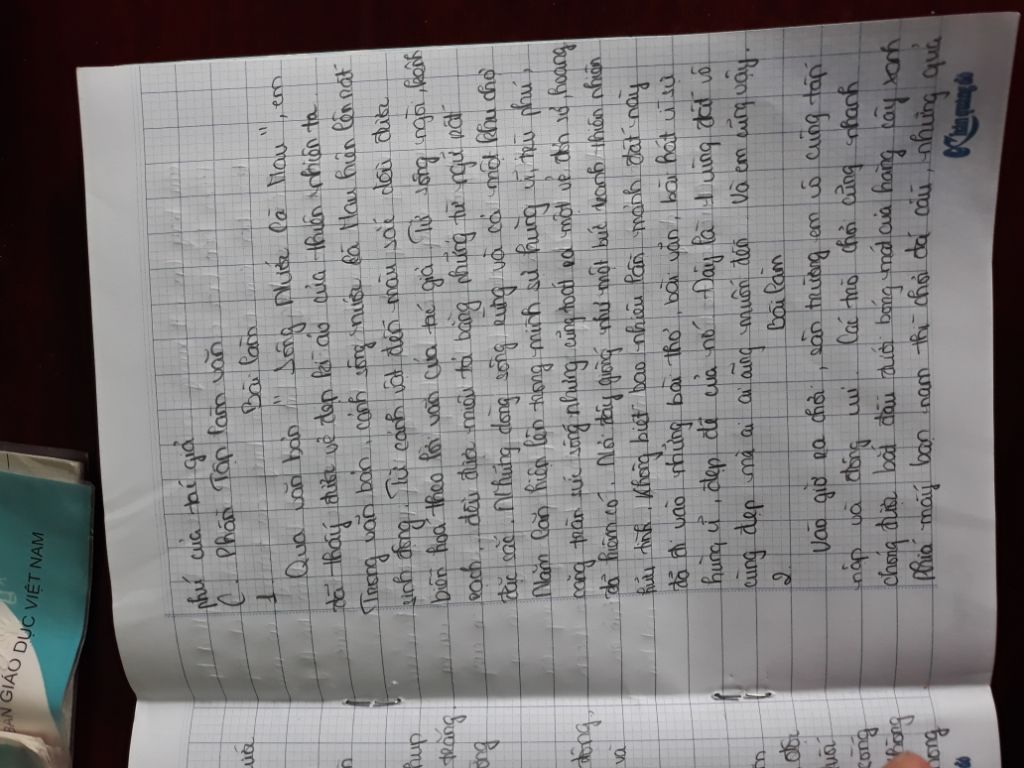 phí của tác giả
C. Phần Tập làm văn
1 Bài làm
Qua văn bản " Sông Nước Cà Mau ", em
đã thấy được vẻ đẹp kì ảo của thiên nhiên ta.
Trong văn bản, cảnh sông nước Cà Mau hiện lên rất
sinh động. Từ cảnh vật đến màu sắc đều được
biến hoá theo lối văn của tác giả. Từ sông ngòi, kênh
rạch, đều được miêu tả bằng những từ ngữ rất
đặc sắc. Những dòng sông rừng và cả một khu chợ
Năm Căn hiện lên mang mình sự hùng vĩ, trù phú,
căng tràn sức sống nhưng cũng toát ra một vẻ đơn sơ hoang
dã hiếm có. Nơi đây giống như một bức tranh thiên nhiên
hữu tình. Không biết bao nhiêu lần mảnh đất này
đã đi vào những bài thơ, bài văn, bài hát vì sự
hùng vĩ, đẹp đẽ của nó. Đây là 1 vùng đất vô
cùng đẹp mà ai ai cũng muốn đến. Và em cũng vậy.
2 Bài làm
Vào giờ ra chơi, sân trường em vô cùng tấp
nập và đông vui. Các trò chơi cũng nhanh
chóng được bắt đầu dưới bóng mát của hàng cây xanh
Phía mấy bạn nam thì chơi đá cầu, những quả
BẢN GIÁO DỤC VIỆT NAM